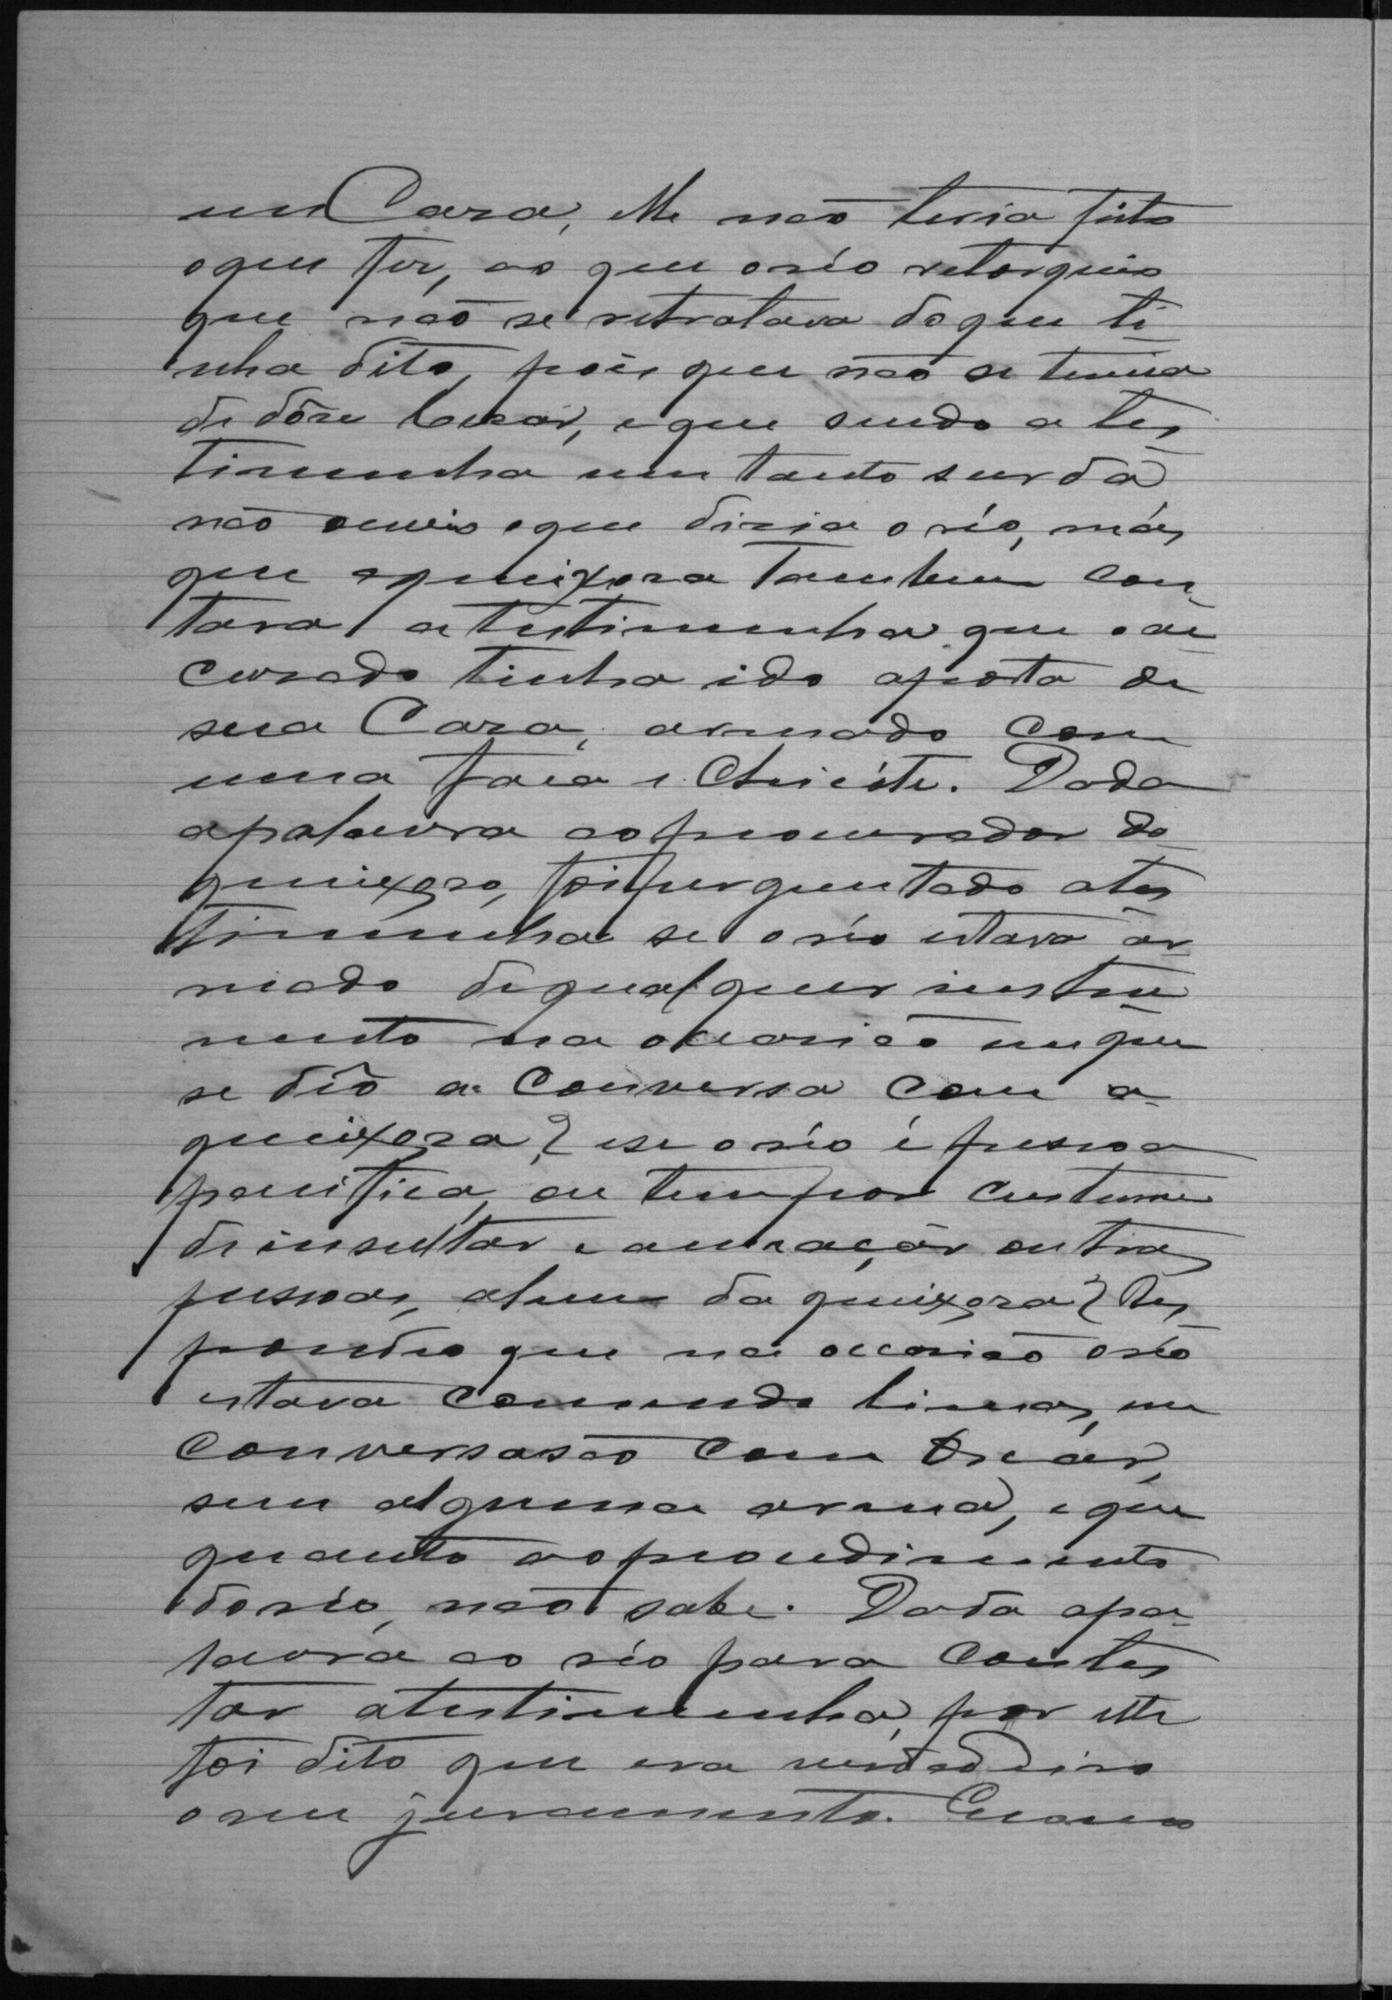 em Caza, elle não teria feito
o que fez, ao que o réo retorquio
que não se retratava do que ti-
nha dito, pois que não se temia
de dôze Cezar, e que sendo a tes-
timunha um tanto surda
não ouvio o que dizia o réo, más
que a queixoza tambem con-
tava a testimunha que o ac-
cuzado tinha ido a porta de
sua Caza, armado com
uma faca e Chicóte. Dada
a palavra ao procurador da
queixoza, foi perguntado a tes-
timunha se o réo estava ar-
mado de qualquer instru-
mento na occazião em que
se dêo a conversa com a
queixoza? e se o réo é pessoa
pacifica, ou tem por custume
de insultar e ameaçar outras
pessoas, alem da queixoza? Res-
pondeo que na occazião o réo
estava comendo limas, em
conversasão com Oscar,
sem alguma arma, e que
quanto ao procedimento
do réo, não sabe. Dada a pa-
lavra ao réo para contes-
tar a testimunha, por elle
foi dito que era verdadeiro
o seu juramento. Como